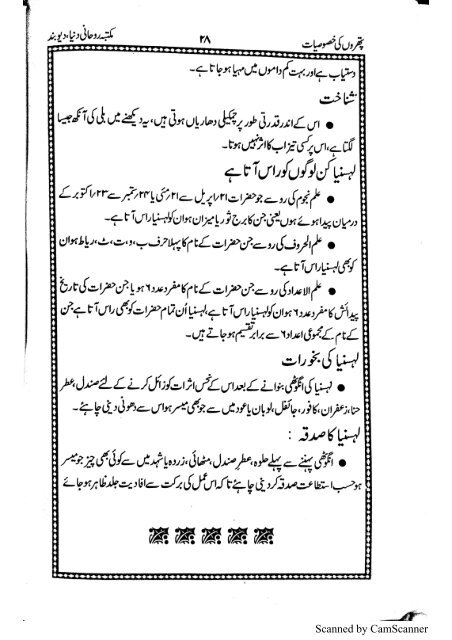 پتھروں کی خصوصیات ۲۸ مکتبہ روحانی دنیا، دیوبند
دستیاب ہے اور بہت کم داموں میں مہیا ہو جاتا ہے۔
شناخت
● اس کے اندر قدرتی طور پر چمکیلی دھاریاں ہوتی ہیں، یہ دیکھنے میں بلی کی آنکھ جیسا
لگتا ہے، اس پر کسی تیزاب کا اثر نہیں ہوتا۔
لہسنیا کن لوگوں کو راس آتا ہے
● علم نجوم کی رو سے جو حضرات ۲۱/اپریل سے ۲۱/مئی یا ۲۴/ستمبر سے ۲۳/اکتوبر کے
درمیان پیدا ہوئے ہوں یعنی جن کا برج ثور یا میزان ہو ان کو لہسنیا راس آتا ہے۔
● علم الحروف کی رو سے جن حضرات کے نام کا پہلا حرف ب، و، ت، ث، ر یا ط ہو ان
کو بھی لہسنیا راس آتا ہے۔
● علم الاعداد کی رو سے جن حضرات کے نام کا مفرد عدد ۶ ہو یا جن حضرات کی تاریخ
پیدائش کا مفرد عدد ۶ ہو ان کو لہسنیا راس آتا ہے، لہسنیا اُن تمام حضرات کو بھی راس آتا ہے جن
کے نام کے مجموعی اعداد ۶ سے برابر تقسیم ہو جاتے ہیں۔
لہسنیا کی بخورات
● لہسنیا کی انگوٹھی بنوانے کے بعد اس کے نحس اثرات کو زائل کرنے کے لئے صندل، عطر
حنا، زعفران، کافور، جائفل، لوبان یا عود میں سے جو بھی میسر ہو اس سے دھونی دینی چاہئے۔
لہسنیا کا صدقہ :
● انگوٹھی پہننے سے پہلے حلوہ، عطر صندل، مٹھائی، زردہ یا شہد میں سے کوئی بھی چیز جو میسر
ہو حسب استطاعت صدقہ کر دینی چاہئے تاکہ اس عمل کی برکت سے افادیت جلد ظاہر ہو جائے
Scanned by CamScanner